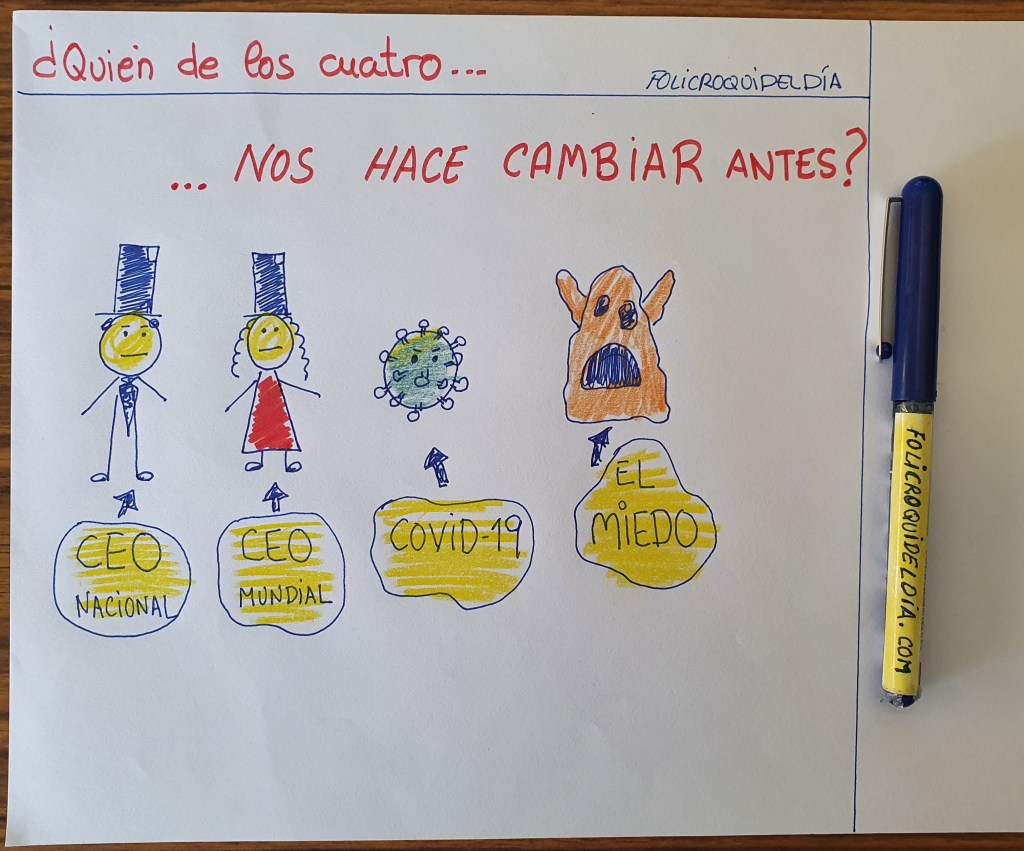 ¿Quién de los cuatro...
FOLICROQUIDELDÍA
... NOS HACE CAMBIAR ANTES?
CEO
NACIONAL
CEO
MUNDIAL
COVID-19
EL
MIEDO
FOLICROQUIDELDIA.COM